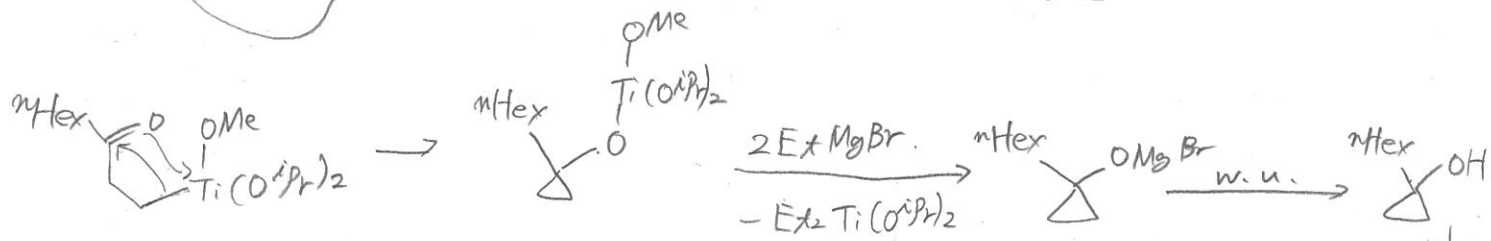 nHex O OMe Ti(OiPr)2
nHex O OMe Ti(OiPr)2
2EtMgBr.
- Et2Ti(OiPr)2
nHex OMgBr
w.u.
nHex OH